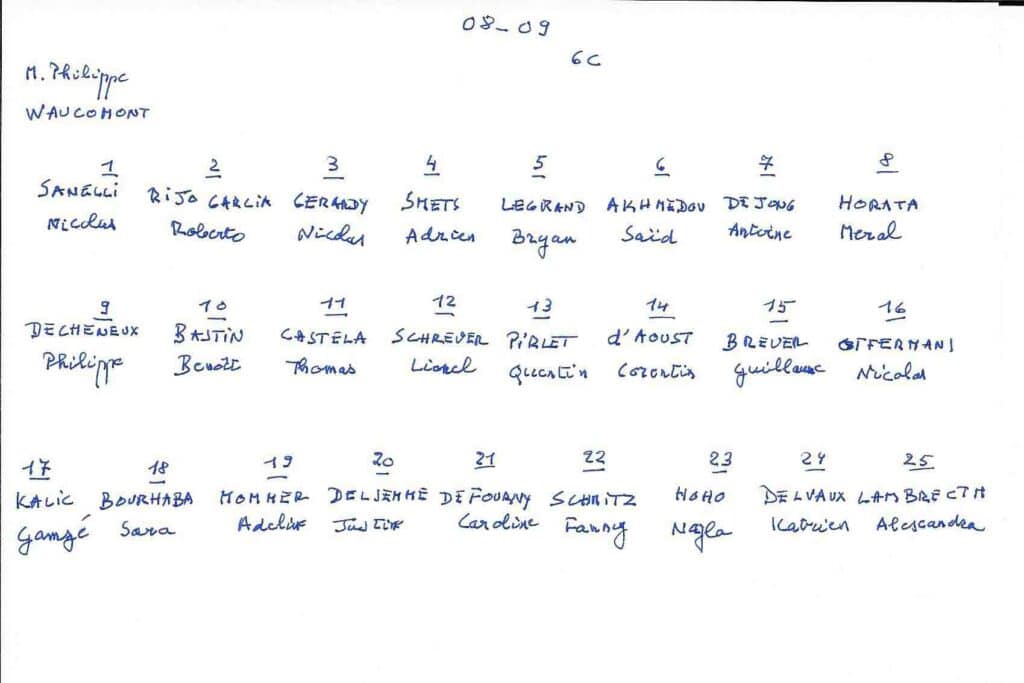 08-09
6C
M. Philippe
WAUCOMONT
1 2 3 4 5 6 7 8
SANELLI RIJO GARCIA GERARDY SMETS LEGRAND AKHMEDOV DEJONG HORATA
Nicolas Roberto Nicolas Adrien Bryan Saïd Antoine Meral
9 10 11 12 13 14 15 16
DECHENEUX BASTIN CASTELA SCHREUER PIRLET d'AOUST BREUER OFFERMANS
Philippe Benoît Thomas Lionel Quentin Corentin Guillaume Nicolas
17 18 19 20 21 22 23 24 25
KALIC BOURHABA MOMMER DELJEMME DEFOURNY SCHMITZ HOHO DELVAUX LAMBRECTH
Gamzé Sara Adeline Justine Caroline Fanny Najla Katrien Alessandra